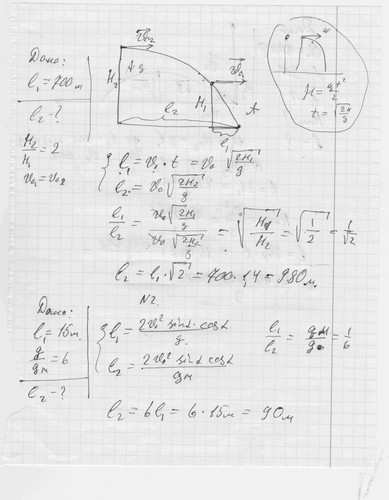 Дано:
l₁ = 700м
l₂ - ?
H₂/H₁ = 2
v₀₁ = v₀₂
v₀₂
g
H₂
v₀₁
H₁
l₂
l₁
H = gt²/2
t = √(2H/g)
l₁ = v₀ · t = v₀ √(2H₁/g)
l₂ = v₀ √(2H₂/g)
l₁/l₂ = v₀√(2H₁/g) / v₀√(2H₂/g) = √(H₁/H₂) = √(1/2) = 1/√2
l₂ = l₁ · √2 = 700 · 1,4 = 980 м.
N2.
Дано:
l₁ = 15м
g/gм = 6
l₂ - ?
l₁ = 2v₀² sinα · cosα / g
l₂ = 2v₀² sinα cosα / gм
l₁/l₂ = gм/g = 1/6
l₂ = 6l₁ = 6 · 15м = 90м